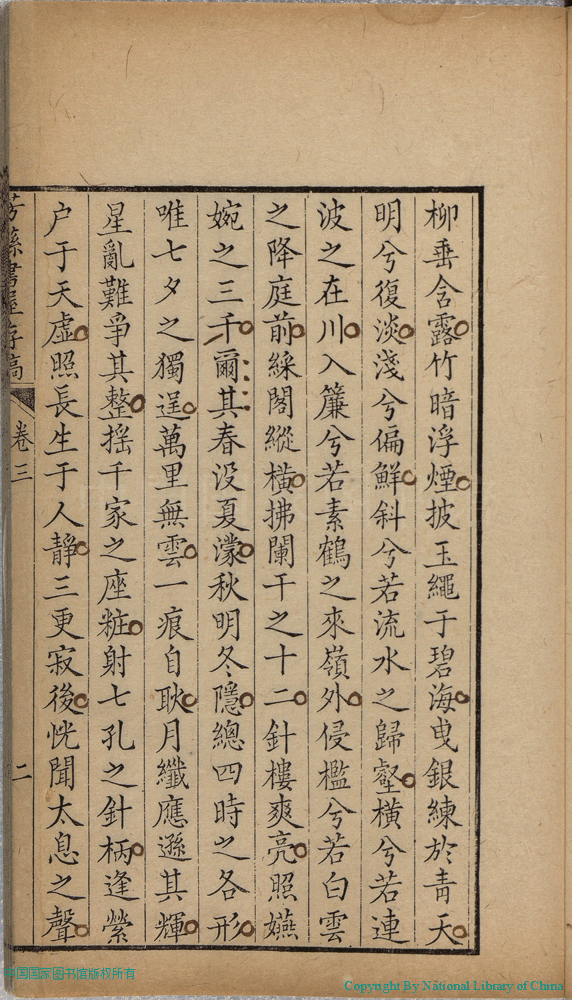 柳垂含露竹暗浮煙披玉繩于碧海曳銀練於青天
明兮復淡淺兮偏鮮斜兮若流水之歸壑橫兮若連
波之在川入簾兮若素鶴之來嶺外侵檻兮若白雲
之降庭前綵閣縱橫拂闌干之十二針樓爽亮照嬿
婉之三千爾其春没夏濛秋明冬隱總四時之各形
唯七夕之獨逞萬里無雲一痕自耿月纖應遜其輝
星亂難爭其整搖千家之座粧射七孔之針柄逢縈
户于天虛照長生于人靜三更寂後恍聞太息之聲
書屋存稿
卷三
二
中国国家图书馆版权所有
Copyright By National Library of China